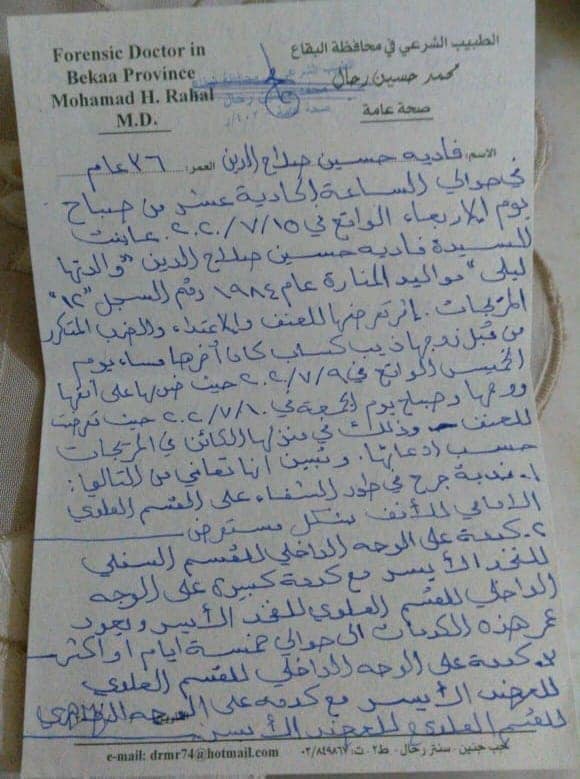 Forensic Doctor in
Bekaa Province
Mohamad H. Rahal
M.D.
الطبيب الشرعي في محافظة البقاع
محمد حسين رحال
صحة عامة
الاسم: فاديه حسين صلاح الدين العمر: ٣٦ عام
في حوالي الساعة الحادية عشر من صباح
يوم الاربعاء الواقع في ٢٠٢٠/٧/١٥ عاينت
السيدة فاديه حسين صلاح الدين "والدتها
ليلى" مواليد المنارة عام ١٩٨٤ رقم السجل "١٢"
المريجات. إثر تعرضها للعنف والاعتداء والضرب المتكرر
من قبل زوجها ذيب كساب كان آخرها مساء يوم
الخميس الواقع في ٢٠٢٠/٧/٩ حيث ضربها على أنفها
ووجهها وصباح يوم الجمعة في ٢٠٢٠/٧/١٠ حيث تعرضت
للعنف وذلك في منزلها الكائن في المريجات
حسب ادعائها. وتبين أنها تعاني من التالي:
١. ندبة جرح في طور الشفاء على القسم العلوي
الامامي للأنف بشكل مستعرض
٢. كدمة على الوجه الداخلي للقسم السفلي
للفخذ الأيسر مع كدمة كبيرة على الوجه
الداخلي للقسم العلوي للفخذ الأيسر ويعود
عمر هذه الكدمات الى حوالي خمسة ايام او اكثر
٣. كدمة على الوجه الداخلي للقسم العلوي
للعضد الأيسر مع كدمة على الوجه الظهري
للقسم العلوي للعضد الأيسر.
جب جنين - سنتر رحال - ط٢ - ت: ٠٣/٨٤٩٨٦٧
e-mail: drmr74@hotmail.com